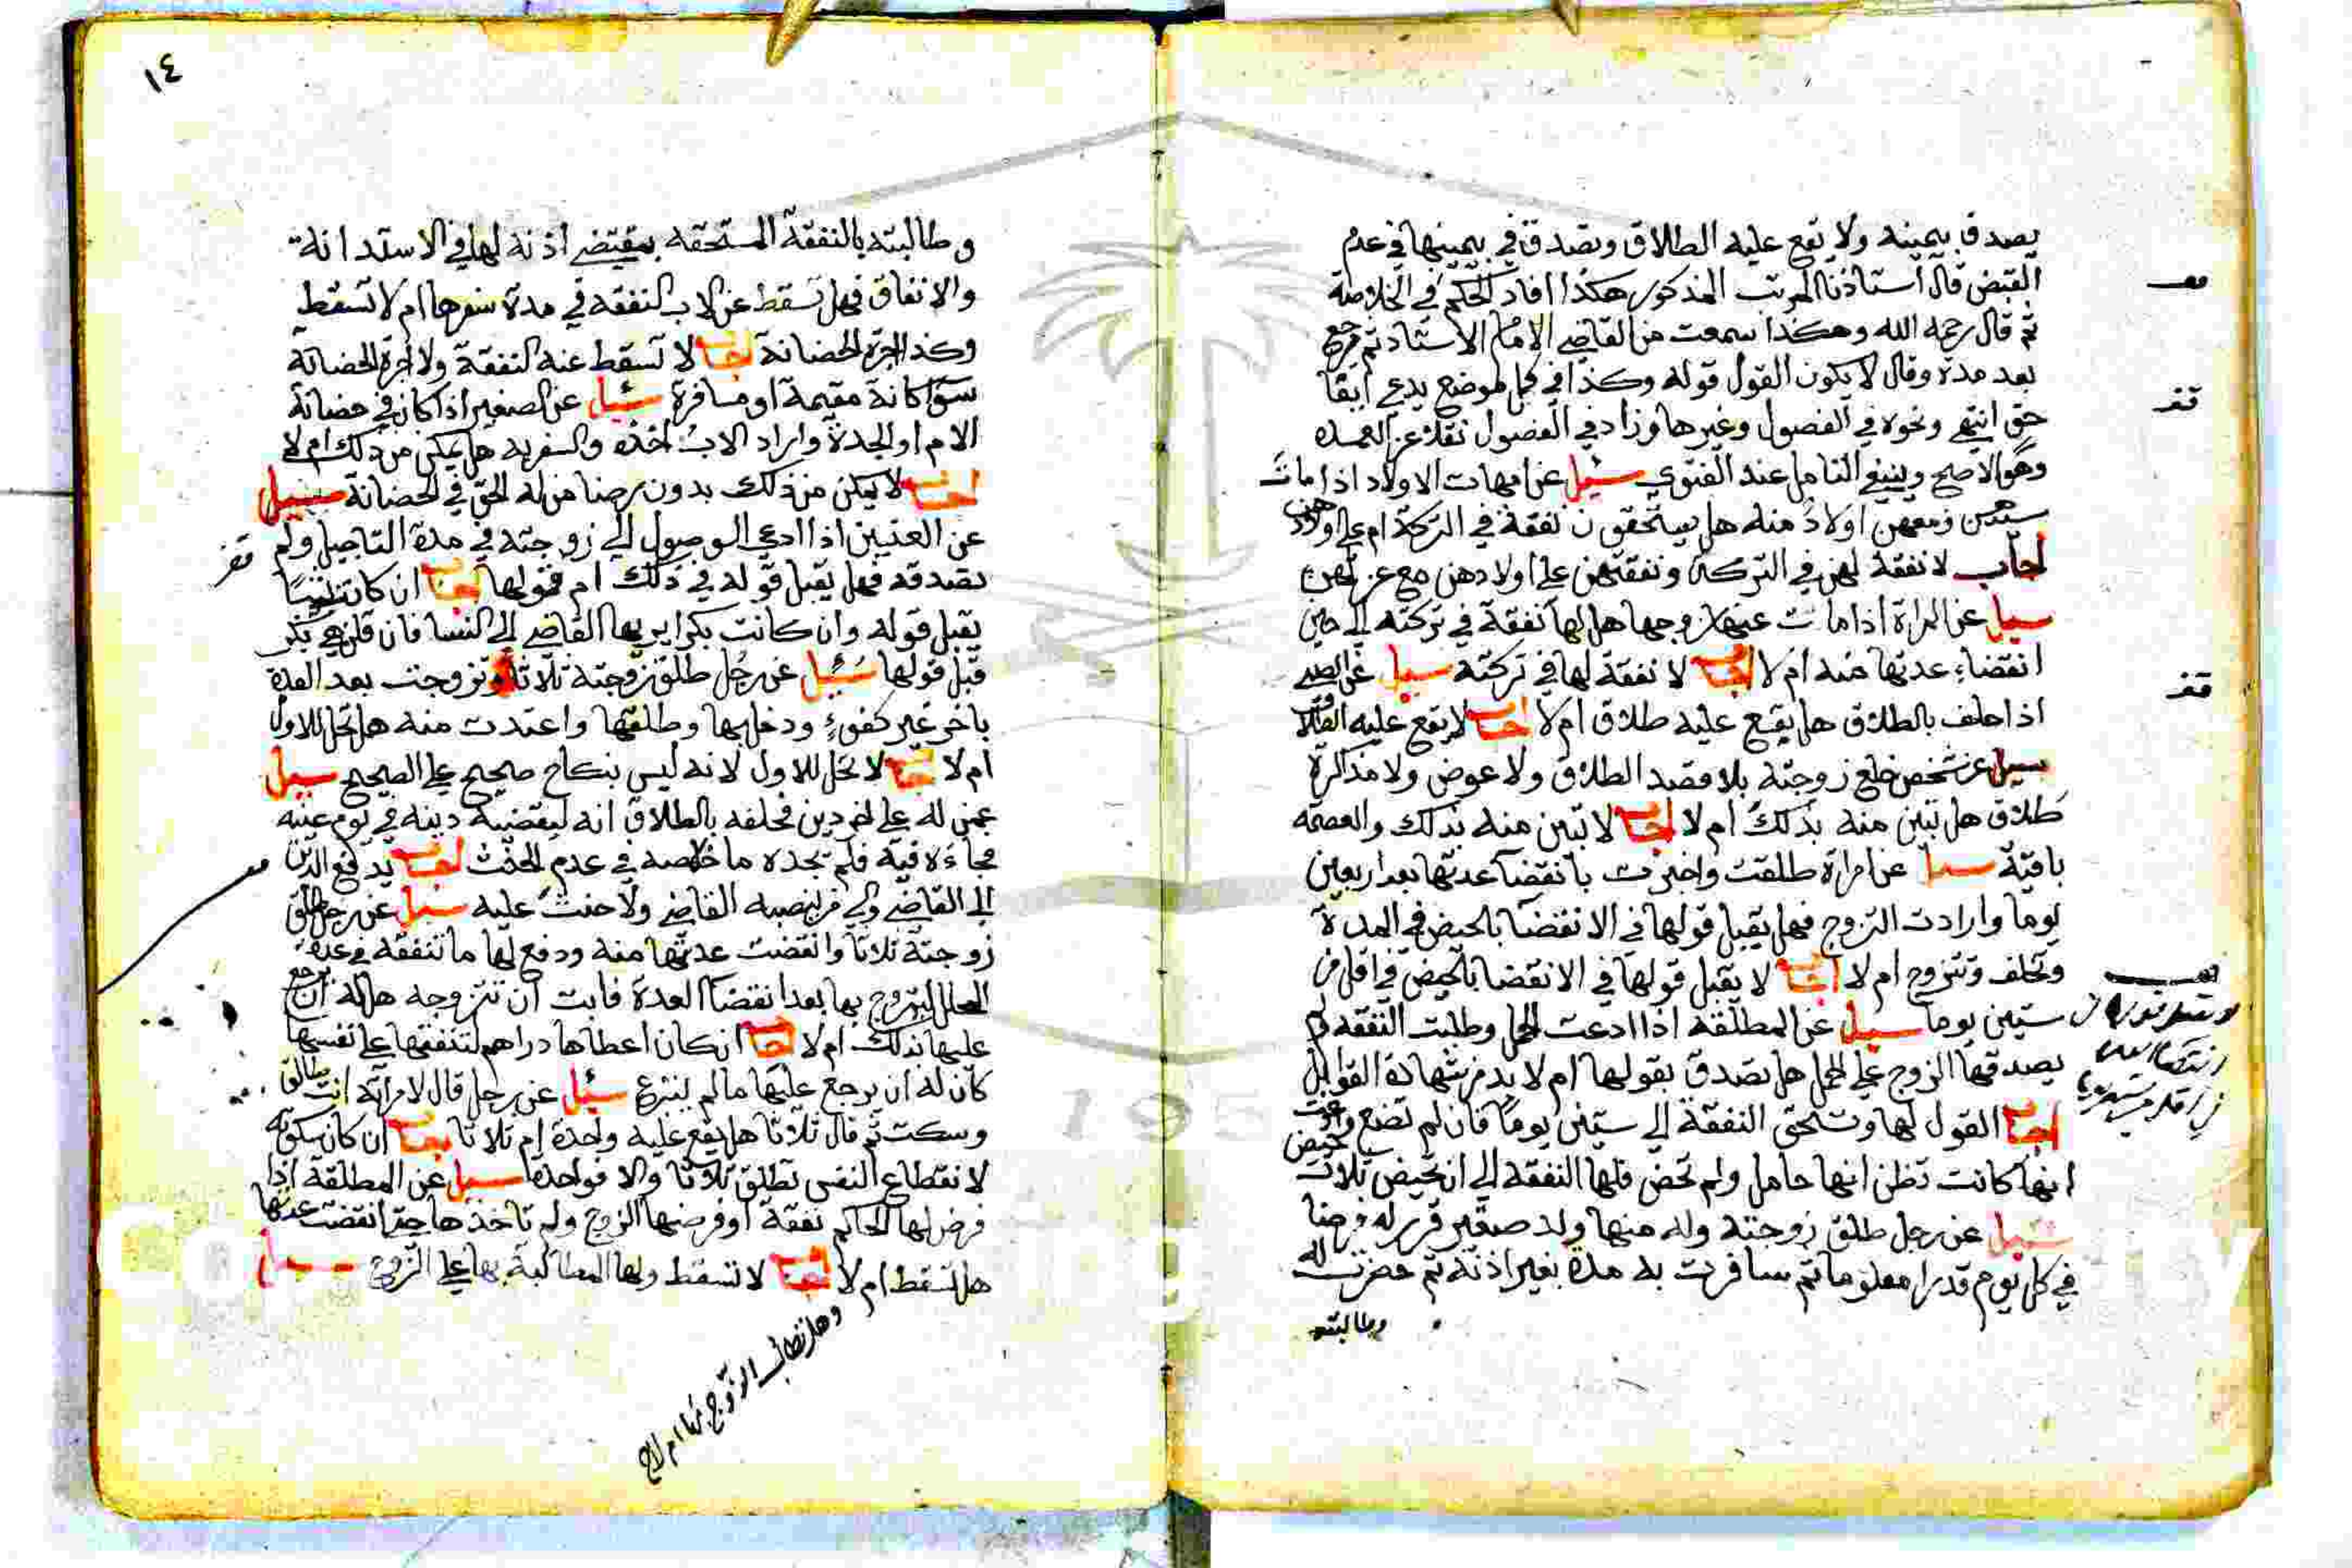 يصدق بيمينه ولا يقع عليه الطلاق وتصدق في بيمينها في عدم
القبض قال أستاذنا المرتب المذكور هكذا افاد الحكم في الخلاصة
ثم قال رحمه الله وهكذا سمعت من القاضي الامام الاستاذ ثم رجع
بعد مدة وقال لا يكون القول قوله وكذا في كل موضع يدعي ايفا
حق انتهى ونحوه في الفصول وغيرها وزاد في الفصول نقلا عن العمده
وهو الاصح وينبغي التامل عند الفتوي سئيل عن امهات الاولاد اذا مات
سيدهن ومعهن اولاد منه هل يستحقون نفقة في التركة ام على اولادهن
اجاب لا نفقة لهن في التركة ونفقتهن على اولادهن مع عزتهن
سيل عن المراة اذا مات عنها زوجها هل لها نفقة في تركته الى حين
انقضاء عدتها منه ام لا اجاب لا نفقة لها في تركته سيل عن الصبي
اذا حلف بالطلاق هل يقع عليه طلاق ام لا اجاب لا يقع عليه الطلاق
سيل عن شخص خلع زوجته بلا قصد الطلاق ولا عوض ولا مذاكرة
طلاق هل تبين منه بذلك ام لا اجاب لا تبين منه بذلك والعصمه
باقية سيل عن امراة طلقت واخبرت بانقضا عدتها بعد اربعين
يوما وارادت التزوج فهل يقبل قولها في الانقضا بالحيض في المدة
وتحلف وتتزوج ام لا اجاب لا يقبل قولها في الانقضا بالحيض في اقل من
ستين يوما سئيل عن المطلقة اذا ادعت الحمل وطلبت النفقه ولم
يصدقها الزوج على الحمل هل تصدق بقولها ام لا بد من شهادة القوابل
اجاب القول لها وتستحق النفقة الى ستين يوما فان لم تضع وادعت
انها كانت تظن انها حامل ولم تحض فلها النفقه الى ان تحيض ثلاث حيض
سئيل عن رجل طلق زوجته وله منها ولد صغير قرر له فرضا
في كل يوم قدرا معلوما ثم سافرت به مدة بغير اذنه ثم حضرت له
وطالبته
١٤
وطالبته بالنفقة المستحقه بمقتضى اذنه لها في الاستدانة
والانفاق فهل تسقط عن الاب النفقه في مدة سفرها ام لا تسقط
وكذا اجرة الحضانة اجاب لا تسقط عنه النفقة ولا اجرة الحضانة
سوا كانة مقيمة او مسافرة سئيل عن الصغير اذا كان في حضانة
الام او الجدة واراد الاب اخذه والسفر به هل يمكن من ذلك ام لا
اجاب لا يمكن من ذلك بدون رضا من له الحق في الحضانة سئيل
عن العنين اذا ادعى الوصول الى زوجته في مدة التاجيل ولم
تصدقه فهل يقبل قوله في ذلك ام قولها اجاب ان كانت ثيبا
يقبل قوله وان كانت بكرا يريها القاضي الى النسا فان قلن هي بكر
قبل قولها سئيل عن رجل طلق زوجته ثلاثا وتزوجت بعد العدة
باخر غير كفوء ودخل بها وطلقها واعتدت منه هل تحل للاول
ام لا اجاب لا تحل للاول لانه ليس بنكاح صحيح على الصحيح سيل
عمن له على اخر دين فحلفه بالطلاق انه ليقضينه دينه في يوم عينه
فجاءه فيه فلم يجده ما خلاصه في عدم الحنث اجاب يدفع الدين
الى القاضي والي من ينصبه القاضي ولا حنث عليه سيل عن رجل طلق
زوجته ثلاثا وانقضت عدتها منه ودفع لها ما تنفقه في عدة
المحلل ليتزوج بها بعد انقضا العدة فابت ان تتزوجه هل له ان يرجع
عليها بذلك ام لا اجاب ان كان اعطاها دراهم لتنفقها على نفسها
كان له ان يرجع عليها ما لم يتبرع سئيل عن رجل قال لامراته انت طالق
وسكت ثم قال ثلاثا هل يقع عليه واحدة ام ثلاثا اجاب ان كان سكوته
لانقطاع النفس تطلق ثلاثا والا فواحدة سيل عن المطلقة اذا
فرض لها الحاكم نفقة او فرضها الزوج ولم تاخذها حتى انقضت عدتها
هل تسقط ام لا اجاب لا تسقط ولها المطالبة بها على الزوج سيل
وهل تطالب الزوج بها ام لا